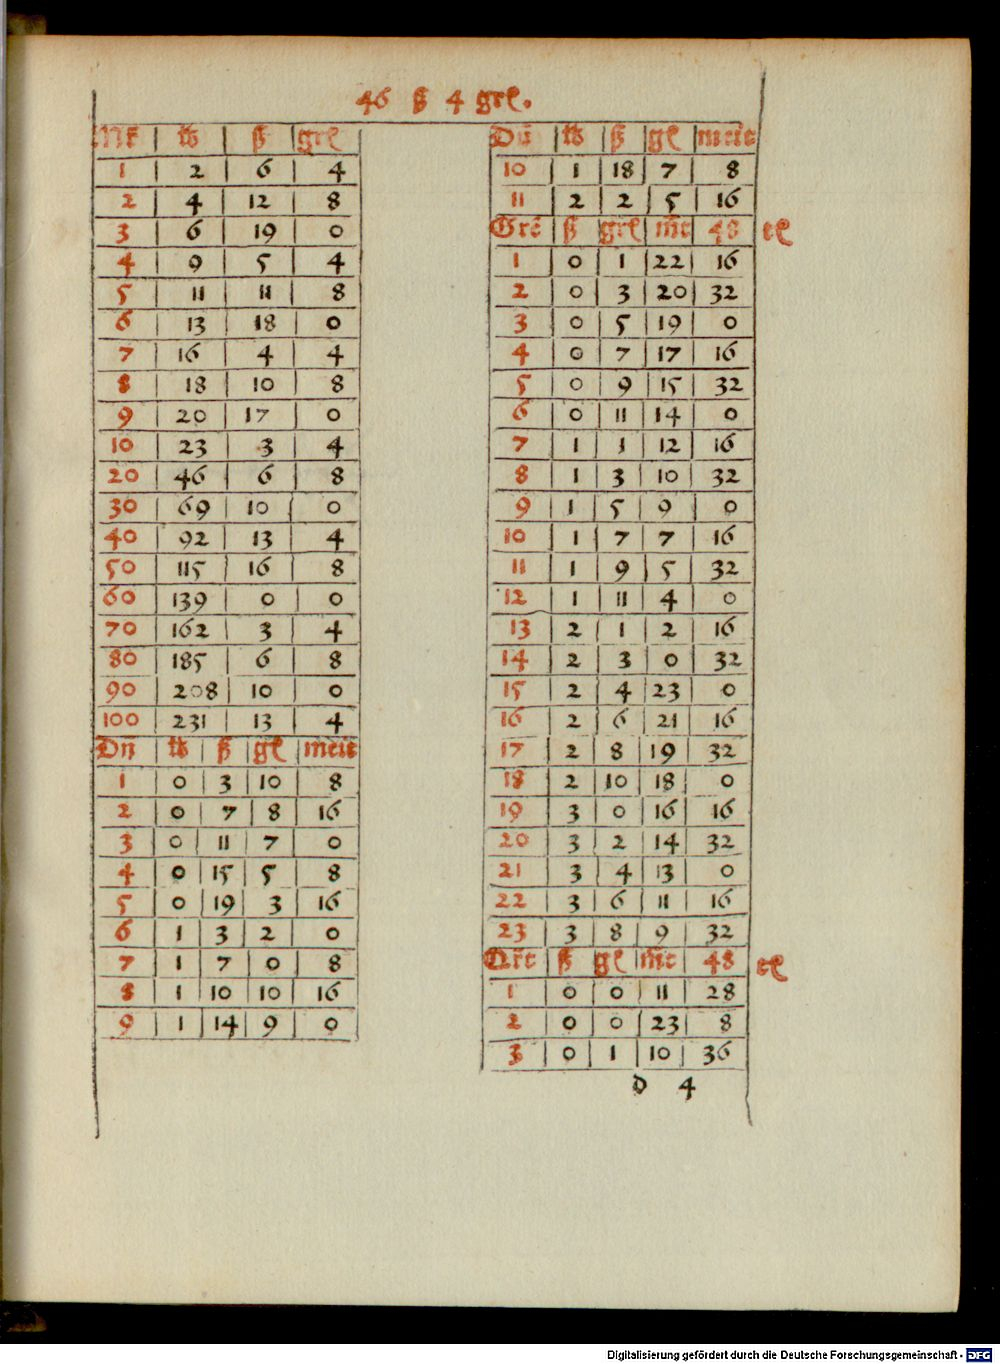 46 ß 4 grl.
Mr ℔ ß grl
1 2 6 4
2 4 12 8
3 6 19 0
4 9 5 4
5 11 11 8
6 13 18 0
7 16 4 4
8 18 10 8
9 20 17 0
10 23 3 4
20 46 6 8
30 69 10 0
40 92 13 4
50 115 16 8
60 139 0 0
70 162 3 4
80 185 6 8
90 208 10 0
100 231 13 4
Dn̄ ℔ ß gl meit
1 0 3 10 8
2 0 7 8 16
3 0 11 7 0
4 0 15 5 8
5 0 19 3 16
6 1 3 2 0
7 1 7 0 8
8 1 10 10 16
9 1 14 9 0
Dn̄ ℔ ß gl meit
10 1 18 7 8
11 2 2 5 16
Gre ß grl mt 48 tl
1 0 1 22 16
2 0 3 20 32
3 0 5 19 0
4 0 7 17 16
5 0 9 15 32
6 0 11 14 0
7 1 1 12 16
8 1 3 10 32
9 1 5 9 0
10 1 7 7 16
11 1 9 5 32
12 1 11 4 0
13 2 1 2 16
14 2 3 0 32
15 2 4 23 0
16 2 6 21 16
17 2 8 19 32
18 2 10 18 0
19 3 0 16 16
20 3 2 14 32
21 3 4 13 0
22 3 6 11 16
23 3 8 9 32
Qrt ß gl mt 48 tl
1 0 0 11 28
2 0 0 23 8
3 0 1 10 36
d 4
Digitalisierung gefördert durch die Deutsche Forschungsgemeinschaft - DFG